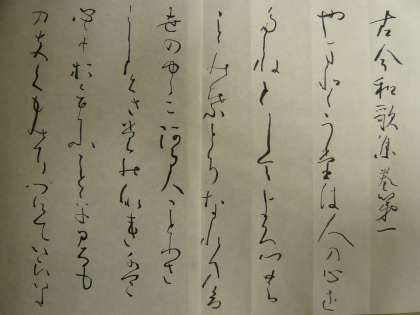 古今和歌集巻第一
やまとうたは人の心を
たねとしてよろつの
ことの葉とそなれりける
世の中に阿る人ことわさ
しけきものなれは
心におもふことを見るも
のきくものにつけていひいた